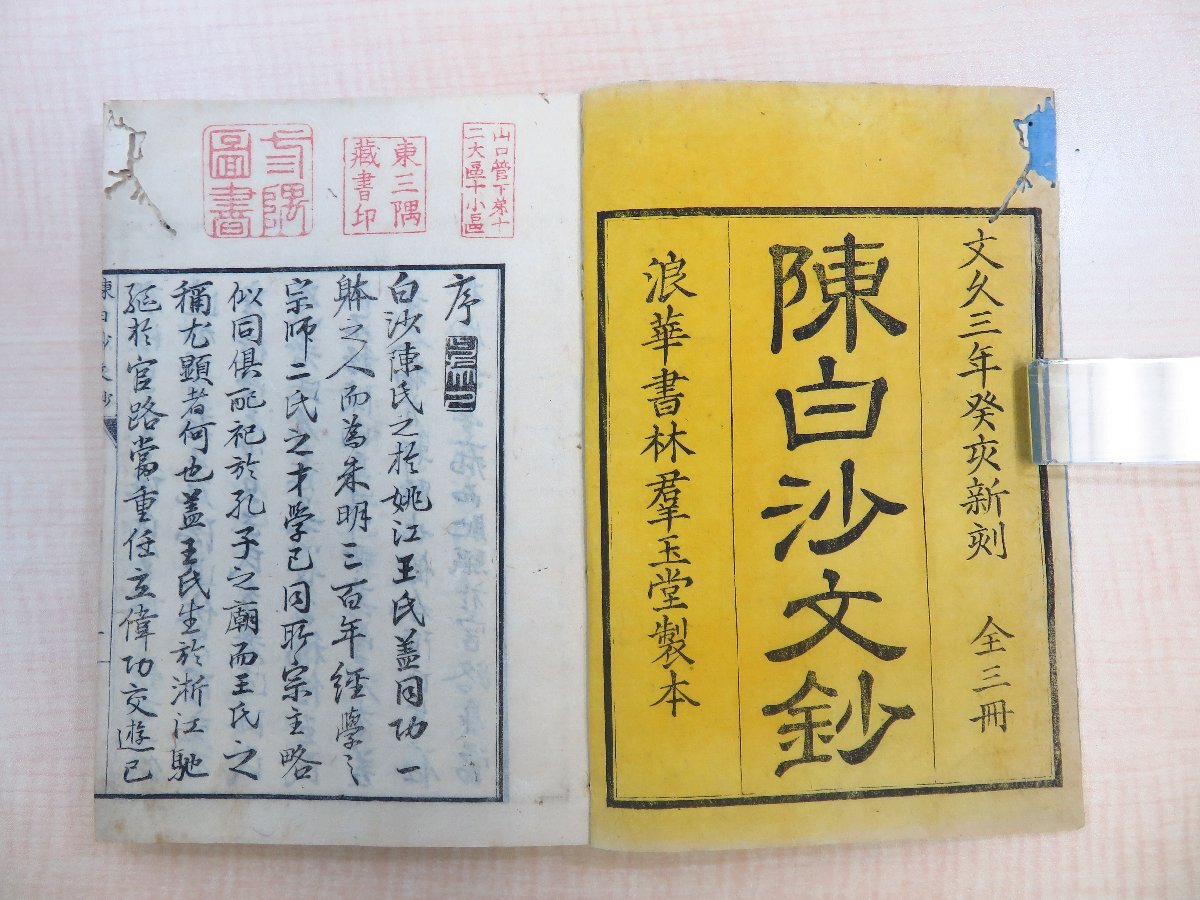 文久三年癸亥新刻 全三冊
陳白沙文鈔
浪華書林羣玉堂製本
山口管下第十
二大區十小區
東三隅
藏書印
三隅
圖書
序
白沙陳氏之於姚江王氏盖同功一
躰之人而為朱明三百年經學之
宗師二氏之才學已同所宗主略
似同俱配祀於孔子之廟而王氏之
稱尤顯者何也盖王氏生於浙江馳
駈於官路當重任立偉功交遊已